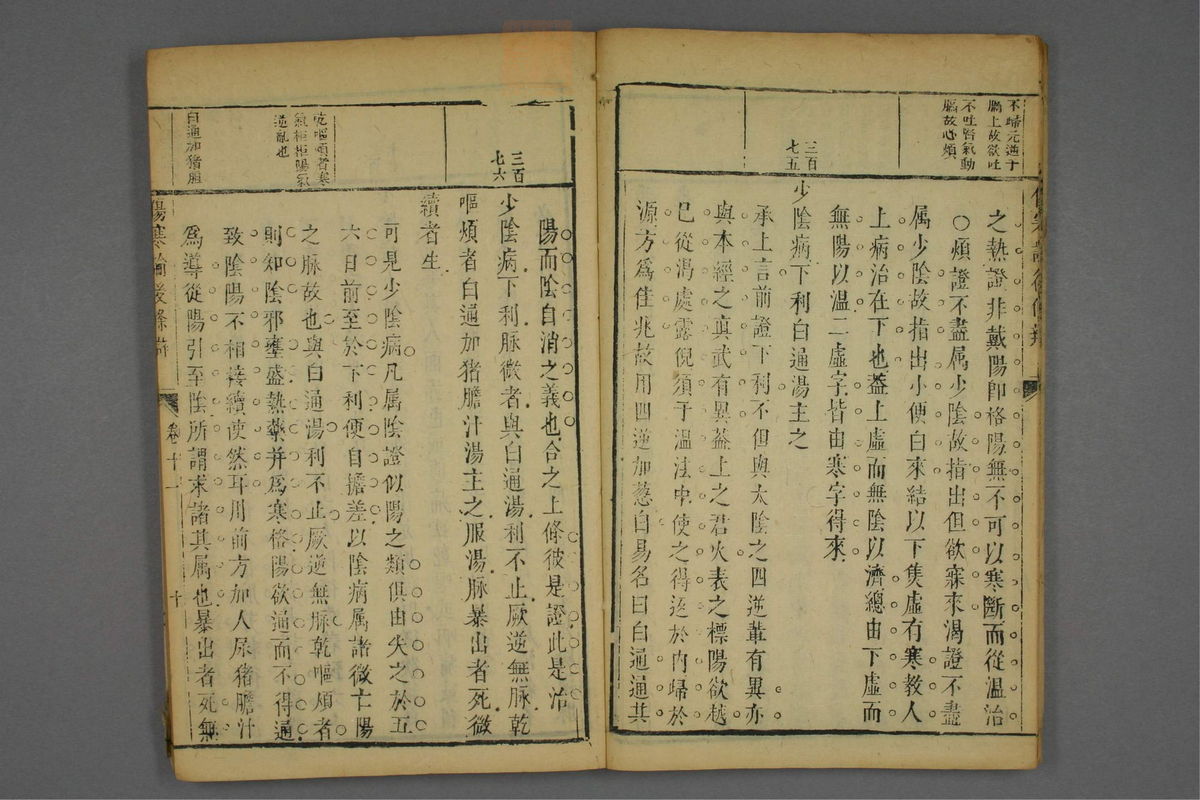 不歸元逆于
膈上故欲吐
不吐腎氣動
膈故心煩
三百
七五
之熱證非戴陽即格陽無不可以寒斷而從温治
○煩證不盡属少陰故指出但欲寐來渴證不盡
属少陰故指出小便白來結以下隻虛有寒教人
上病治在下也葢上虛而無陰以濟總由下虛而
無陽以温二虛字皆由寒字得來
少陰病下利白通湯主之
承上言前證下利不但與太陰之四逆軰有異亦
與本經之真武有異葢上之君火表之標陽欲越
已從渴處露倪須于温法中使之得返於內歸於
源方爲佳兆故用四逆加葱白易名曰白通通其
三百
七六
乾嘔煩者寒
氣拒陽氣
逆亂也
白通加猪胆
陽而陰自消之義也合之上條彼是證此是治
少陰病下利脉微者與白通湯利不止厥逆無脉乾
嘔煩者白通加猪膽汁湯主之服湯脉暴出者死微
續者生
可見少陰病凡属陰證似陽之類俱由失之於五
六日前至於下利便自擔差以陰病属諸微亡陽
之脉故也與白通湯利不止厥逆無脉乾嘔煩者
則知陰邪壅盛熱藥并爲寒格陽欲通而不得通
致陰陽不相接續使然耳用前方加人尿猪膽汁
爲導從陽引至陰所謂求諸其属也暴出者死無
傷寒論後條辯
卷十一
十